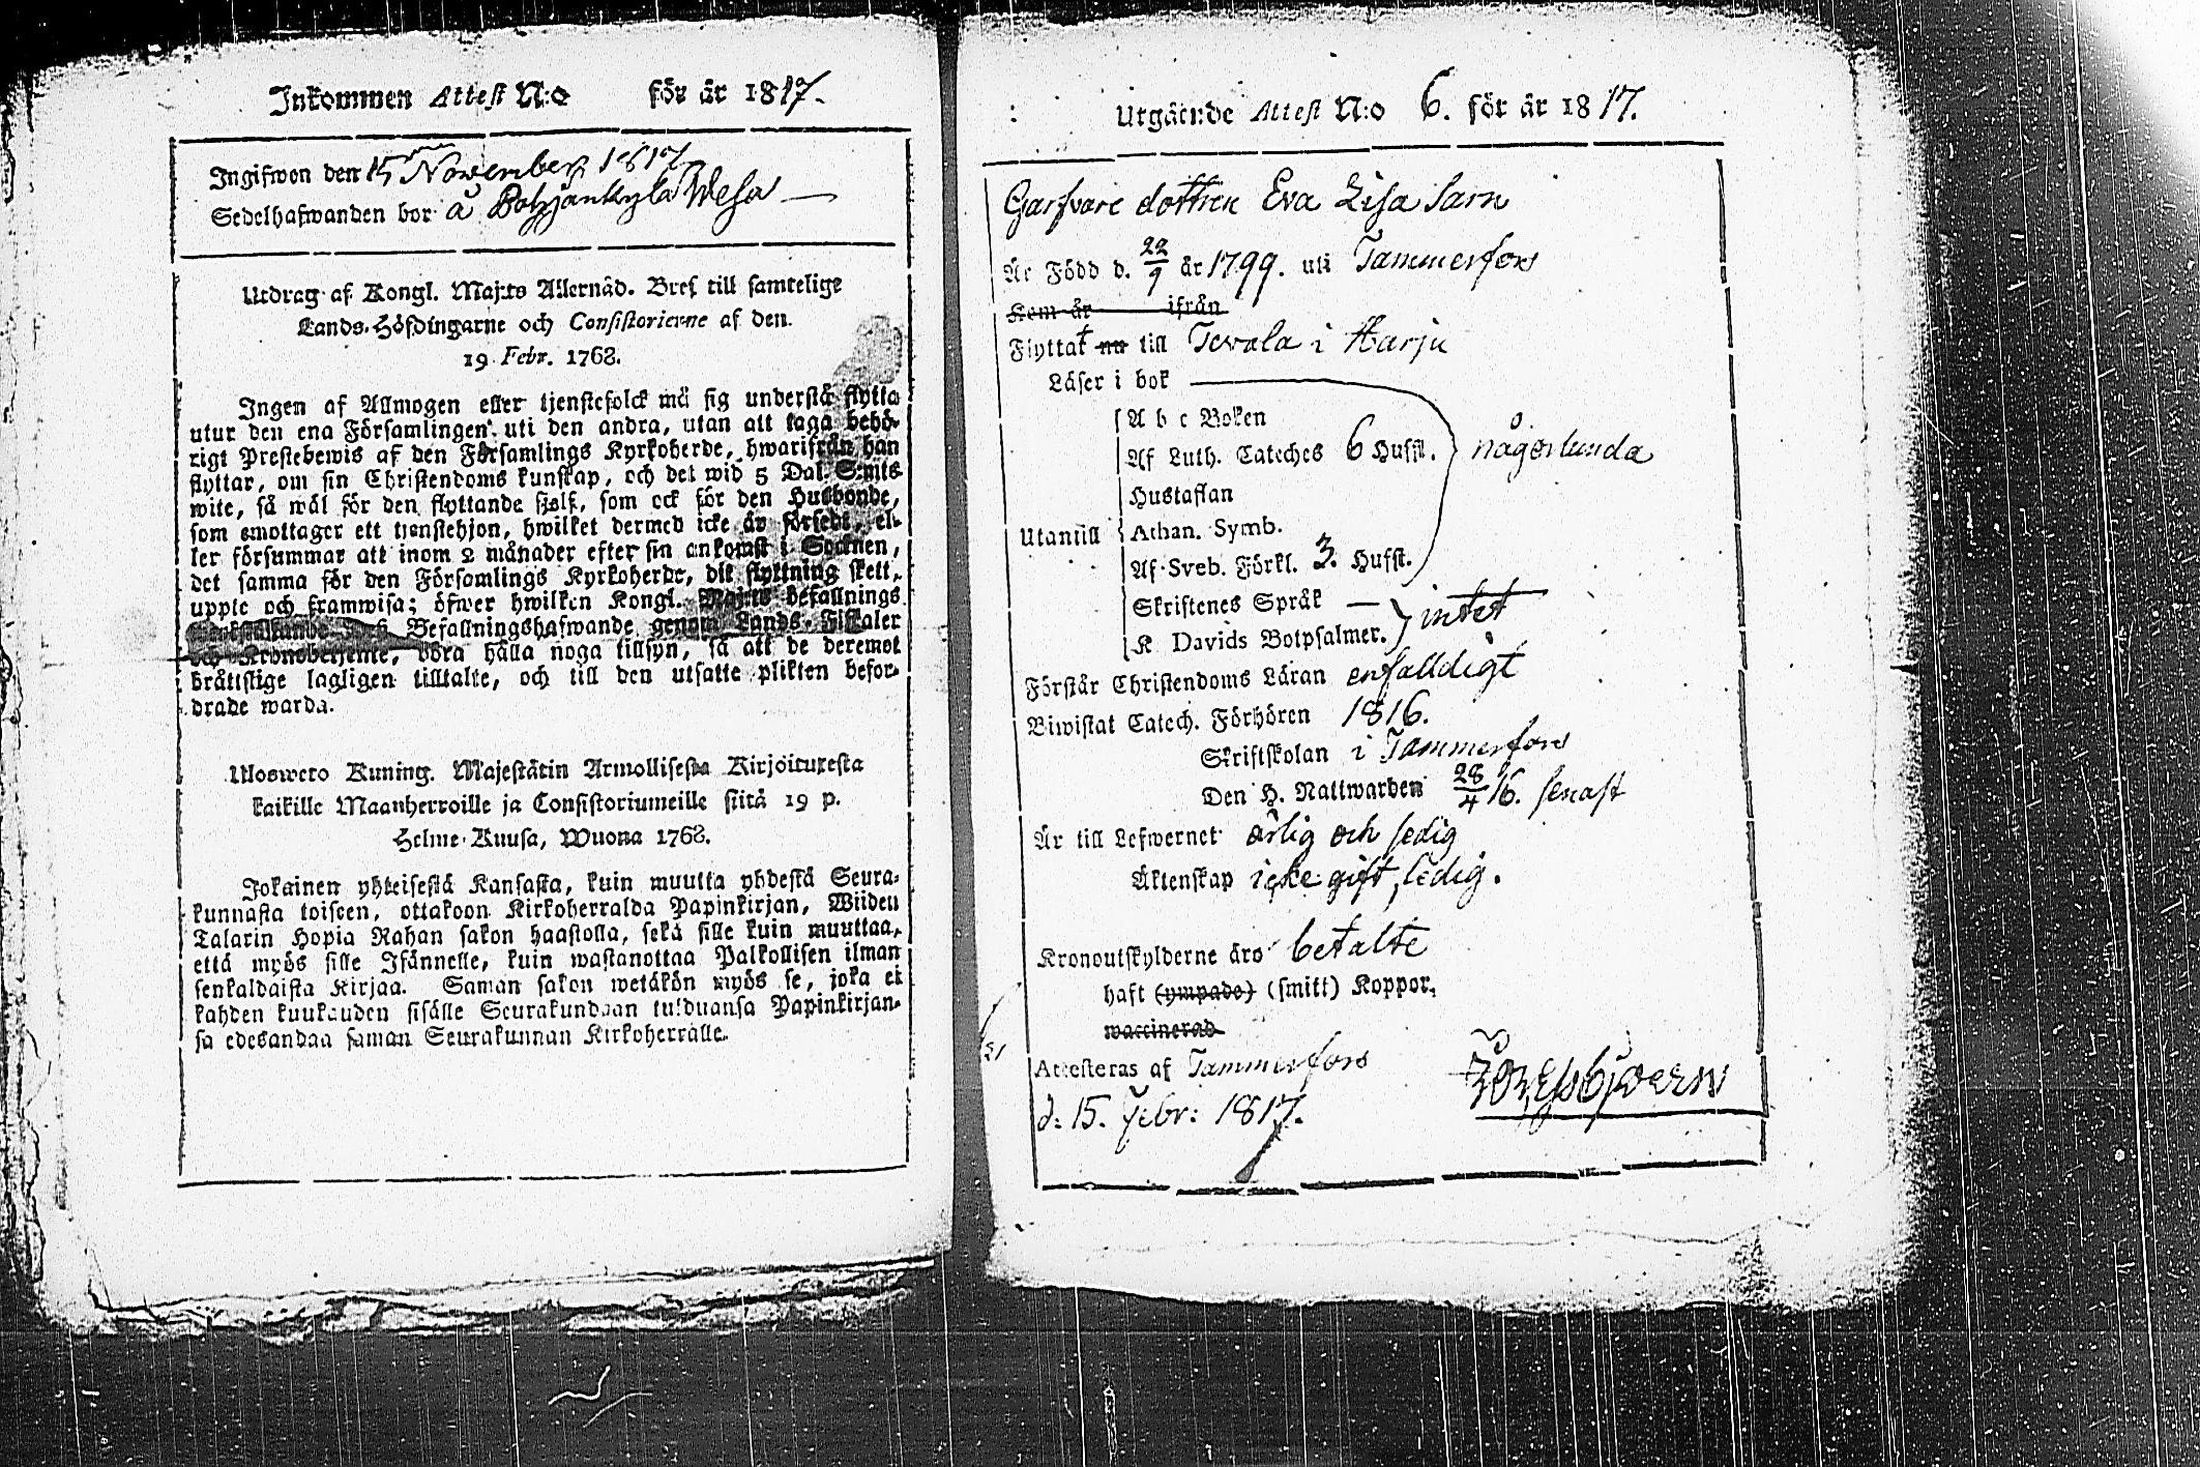 Inkommen Attest N:o för år 1817.
Ingifwon den 15 November 1817
Sedelhafwanden bor å Pohjankylä Wesa
Utdrag af Kongl. Maj:ts Allernåd. Bref till samtelige
Lands-Höfdingarne och Consistorierne af den
19 Febr. 1768.
Ingen af Allmogen eller tjenstefolck må sig understå flytta
utur den ena Församlingen uti den andra, utan att taga behö-
rigt Prestebewis af den Församlings Kyrkoherde, hwarifrån han
flyttar, om sin Christendoms kunskap, och det wid 5 Dal. S:mts
wite, så wäl för den flyttande sjelf, som ock för den Husbonde,
som emottager ett tjenstehjon, hwilket dermed icke är försedt, el-
ler försummar att inom 2 månader efter sin ankomst i Socknen,
det samma för den Församlings Kyrkoherde, dit flyttning skett,
uppte och framwisa; öfwer hwilken Kongl. Maj:ts befallnings
Befallningshafwande genom Lands-Fiskaler
och Kronobetjente, böra hålla noga tillsyn, så att de deremot
bråttslige lagligen tilltalte, och till den utsatte plikten befor-
drade warda.
Uloswero Kuning. Majestätin Armollisesta Kirjoituxesta
kaikille Maanherroille ja Consistoriumeille siitä 19 p.
Helme-Kuusa, Wuona 1768.
Jokainen yhteisestä Kansasta, kuin muutta yhdestä Seura-
kunnasta toiseen, ottakoon Kirkoherralda Papinkirjan, Wiiden
Talarin Hopia Rahan sakon haastolla, sekä sille kuin muuttaa,
että myös sille Isännelle, kuin wastanottaa Palkollisen ilman
senkaldaista Kirjaa. Saman sakon wetäkön myös se, joka ei
kahden kuukauden sisälle Seurakundaan tulduansa Papinkirjan-
sa edesandaa saman Seurakunnan Kirkoherralle.
Utgående Attest N:o 6. för år 1817.
Garfvare dottren Eva Lisa Sarn
Är Född d. 22/9 år 1799. uti Tammerfors
Kom år ifrån
Flyttat nu till Tevala i Harju
Läser i bok
A b c Boken
Af Luth. Cateches 6 Hufst. någorlunda
Hustaflan
Utantill Athan. Symb.
Af Sveb. Förkl. 3. Hufst.
Skriftenes Språk
K Davids Botpsalmer. intet
Förstår Christendoms Läran enfalldigt
Biwistat Catech. Förhören 1816.
Skriftskolan i Tammerfors
Den H. Nattwarden 28/4 16. senast
Är till Lefwernet ärlig och sedig
Äktenskap icke gift, ledig.
Kronoutskylderne äro betalte
haft (ympade) (smitt) Koppor,
waccinerad
Attesteras af Tammerfors
d: 15. Febr: 1817.